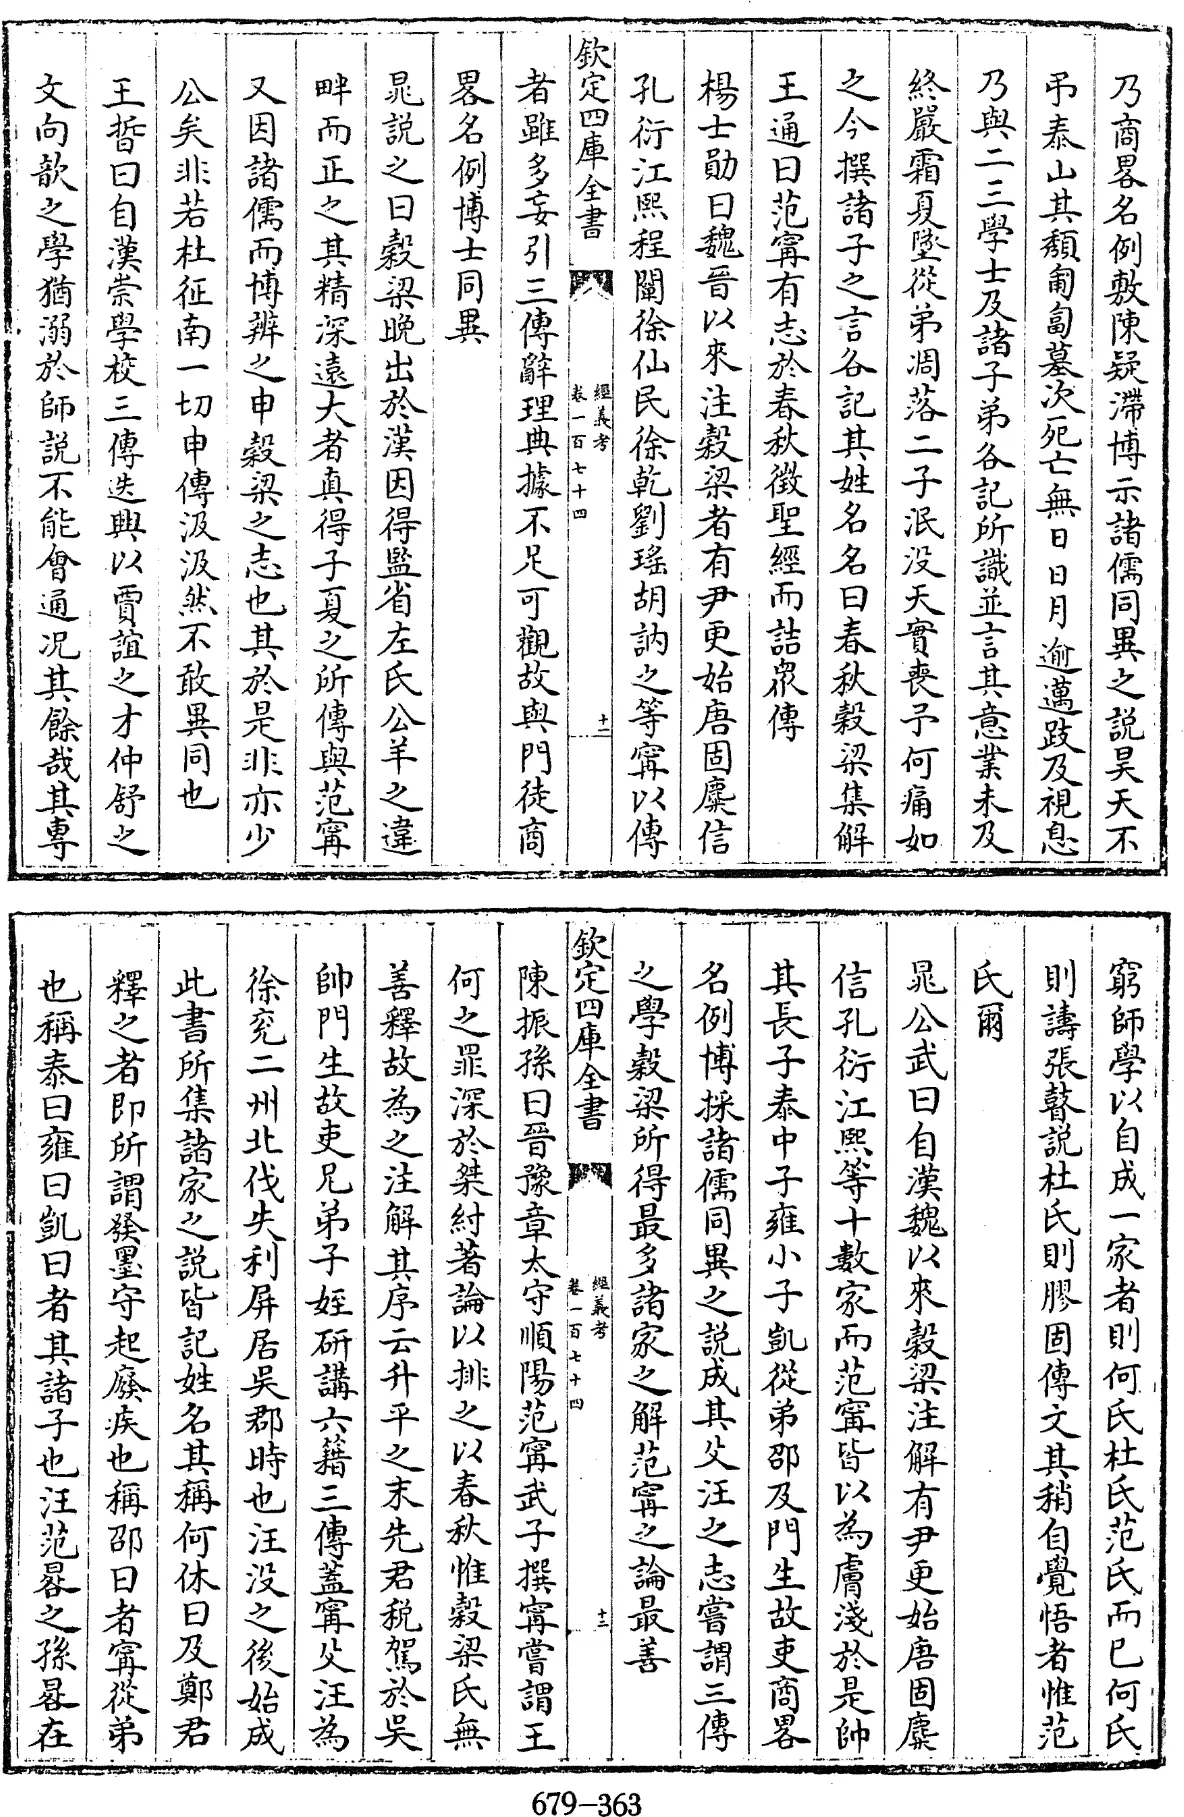 乃商畧名例敷陳疑滯博示諸儒同異之説昊天不
弔泰山其頽匍匐墓次死亡無日日月逾邁跂及視息
乃與二三學士及諸子弟各記所識並言其意業未及
終嚴霜夏墜從弟凋落二子泯没天實喪予何痛如
之今撰諸子之言各記其姓名名曰春秋穀梁集解
王通曰范甯有志於春秋徴聖經而詰衆傳
楊士勛曰魏晉以來注穀梁者有尹更始唐固麋信
孔衍江熙程闡徐仙民徐乾劉瑤胡訥之等甯以傳
欽定四庫全書
經義考
卷一百七十四
十二
者雖多妄引三傳辭理典據不足可觀故與門徒商
畧名例博士同異
晁説之曰穀梁晚出於漢因得監省左氏公羊之違
畔而正之其精深逺大者真得子夏之所傳與范甯
又因諸儒而博辨之申穀梁之志也其於是非亦少
公矣非若杜征南一切申傳汲汲然不敢異同也
王晳曰自漢崇學校三傳迭興以賈誼之才仲舒之
文向歆之學猶溺於師説不能會通况其餘哉其專
窮師學以自成一家者則何氏杜氏范氏而已何氏
則譸張瞽説杜氏則膠固傳文其稍自覺悟者惟范
氏爾
晁公武曰自漢魏以來穀梁注解有尹更始唐固麋
信孔衍江熙等十數家而范甯皆以為膚淺於是帥
其長子泰中子雍小子凱從弟邵及門生故吏商畧
名例博採諸儒同異之説成其父汪之志嘗謂三傳
之學穀梁所得最多諸家之解范甯之論最善
欽定四庫全書
經義考
卷一百七十四
十三
陳振孫曰晉豫章太守順陽范甯武子撰甯嘗謂王
何之罪深於桀紂著論以排之以春秋惟穀梁氏無
善釋故為之注解其序云升平之末先君税駕於吳
帥門生故吏兄弟子姪研講六籍三傳蓋甯父汪為
徐兖二州北伐失利屏居吳郡時也汪没之後始成
此書所集諸家之説皆記姓名其稱何休曰及鄭君
釋之者即所謂發墨守起廢疾也稱邵曰者甯從弟
也稱泰曰雍曰凱曰者其諸子也汪范晷之孫晷在
679-363